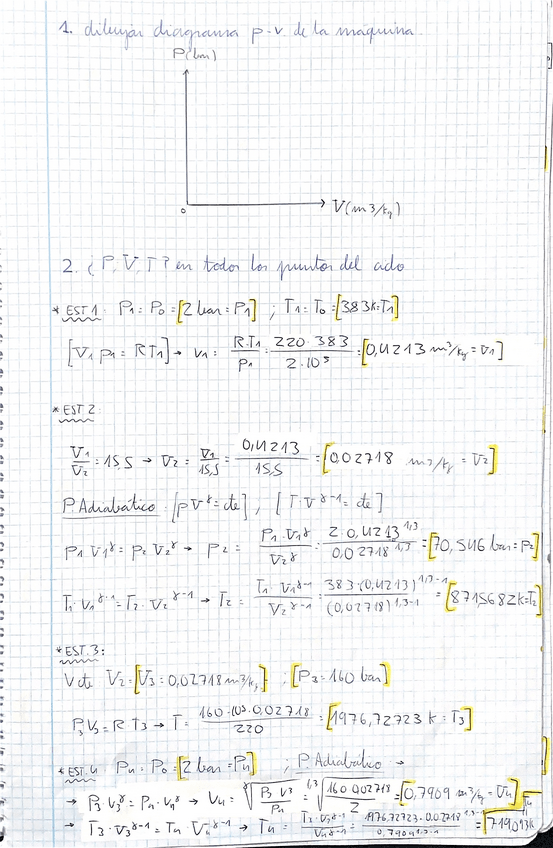 1. dibujar diagrama p-v de la máquina.
P(bar)
0
V(m3/kg)
2. ¿P, V, T? en todos los puntos del ciclo
* EST 1: P1 = P0 = [2 bar = P1] ; T1 = T0 = [383K = T1]
[V1 p1 = R T1] → V1 = R·T1/P1 = 220·383/2·10⁵ = [0,4213 m³/kg = V1]
* EST 2:
V1/V2 = 15,5 → V2 = V1/15,5 = 0,4213/15,5 = [0,02718 m3/kg = V2]
P. Adiabático: [pV^γ = cte], [T·V^γ-1 = cte]
P1 V1^γ = P2 V2^γ → P2 = P1·V1^γ/V2^γ = 2·0,4213^1,3/0,02718^1,3 = [70,546 bar = P2]
T1·V1^γ-1 = T2·V2^γ-1 → T2 = T1·V1^γ-1/V2^γ-1 = 383·(0,4213)^1,3-1/(0,02718)^1,3-1 = [871,5682K = T2]
* EST. 3:
V cte V2 = [V3 = 0,02718 m3/kg] ; [P3 = 160 bar]
P3 V3 = R T3 → T = 160·10⁵·0,02718/220 = [1976,72723 K = T3]
* EST. 4: P4 = P0 = [2 bar = P4] ; P. Adiabático →
→ P3·V3^γ = P4·V4^γ → V4 = γ√P3 V3^γ/P4 = 1,3√160·0,02718^1,3/2 = [0,7909 m3/kg = V4]
→ T3·V3^γ-1 = T4·V4^γ-1 → T4 = T3·V3^γ-1/V4^γ-1 = 1976,72723·0,02718^1,3-1/0,7909^1,3-1 =